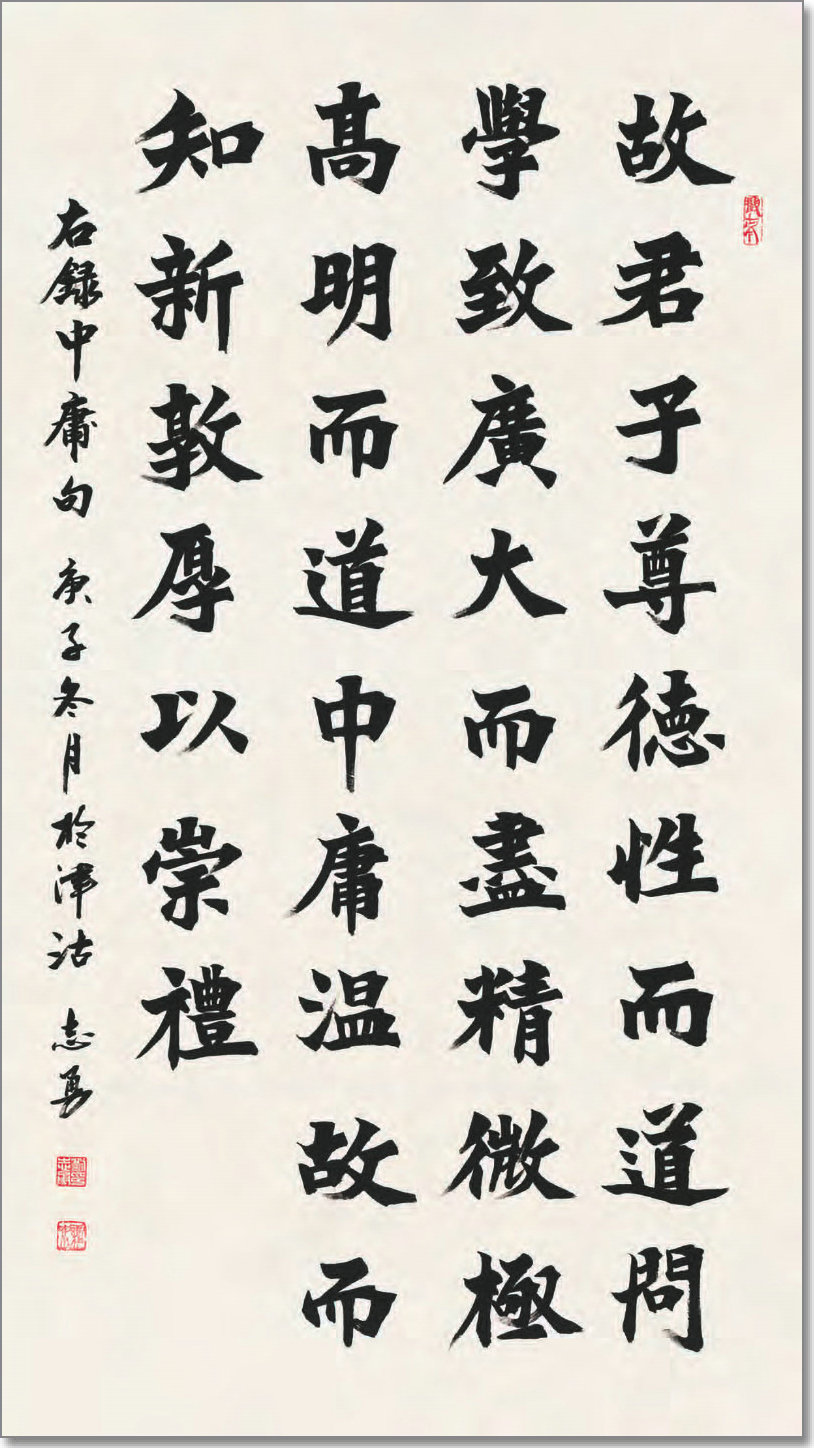 故君子尊德性而道問
學致廣大而盡精微極
高明而道中庸温故而
知新敦厚以崇禮
右録中庸句 庚子冬月於津沽 志勇